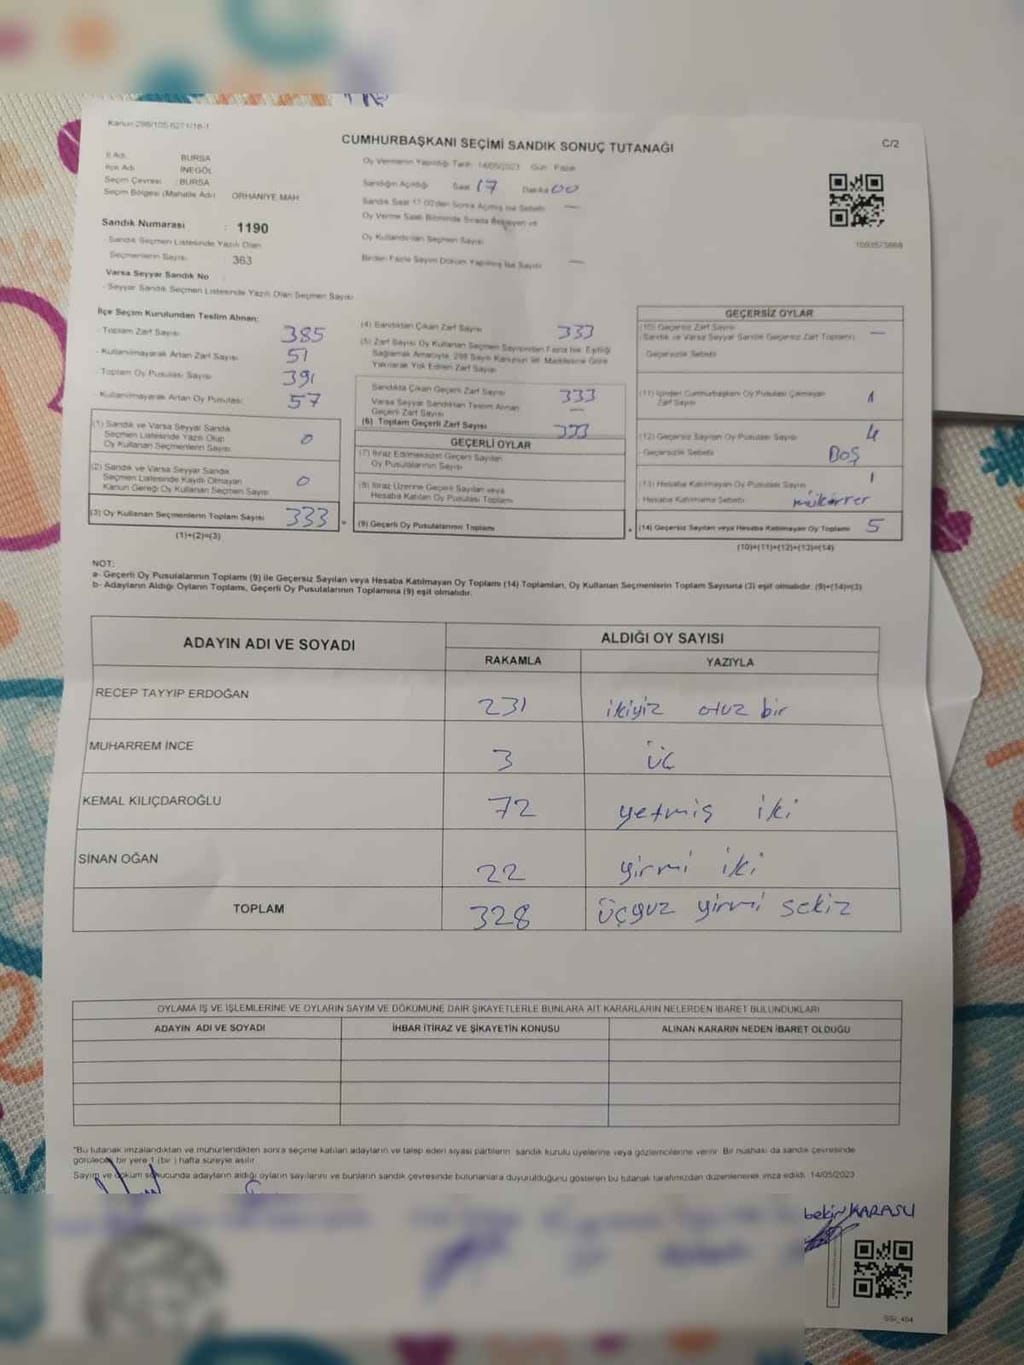 CUMHURBAŞKANI SEÇİMİ SANDIK SONUÇ TUTANAĞI
C/2
İl Adı : BURSA
İlçe Adı : İNEGÖL
Seçim Çevresi : BURSA
Seçim Bölgesi (Mahalle Adı) : ORHANİYE MAH
Sandık Numarası : 1190
Sandık Seçmen Listesinde Yazılı Olan
Seçmenlerin Sayısı : 363
Varsa Seyyar Sandık No
Seyyar Sandık Seçmen Listesinde Yazılı Olan Seçmen Sayısı
Oy Vermenin Yapıldığı Tarih : 14/05/2023 Gün : Pazar
Sandığın Açıldığı Saat 17 Dakika 00
Oy Kullandırılan Seçmen Sayısı
Birden Fazla Sayım Döküm Yapılmış İse Sayısı —
İlçe Seçim Kurulundan Teslim Alınan:
- Toplam Zarf Sayısı 385
- Kullanılmayarak Artan Zarf Sayısı 51
- Toplam Oy Pusulası Sayısı 391
- Kullanılmayarak Artan Oy Pusulası 57
(1) Sandık ve Varsa Seyyar Sandık
Seçmen Listesinde Yazılı Olup
Oy Kullanan Seçmenlerin Sayısı 0
(2) Sandık ve Varsa Seyyar Sandık
Seçmen Listesinde Kaydı Olmayan
Kanun Gereği Oy Kullanan Seçmen Sayısı 0
(3) Oy Kullanan Seçmenlerin Toplam Sayısı 333
(1)+(2)=(3)
(4) Sandıktan Çıkan Zarf Sayısı 333
(5) Zarf Sayısı Oy Kullanan Seçmen Sayısından Fazla İse, Eşitliği
Sağlamak Amacıyla, 298 Sayılı Kanunun 98. Maddesine Göre
Yakılarak Yok Edilen Zarf Sayısı
Sandıkta Çıkan Geçerli Zarf Sayısı 333
Varsa Seyyar Sandıktan Teslim Alınan
Geçerli Zarf Sayısı —
(6) Toplam Geçerli Zarf Sayısı 333
GEÇERLİ OYLAR
(7) İtiraz Edilmeksizin Geçerli Sayılan
Oy Pusulalarının Sayısı
(8) İtiraz Üzerine Geçerli Sayılan veya
Hesaba Katılan Oy Pusulası Toplamı
(9) Geçerli Oy Pusulalarının Toplamı
GEÇERSİZ OYLAR
(10) Geçersiz Zarf Sayısı —
(Sandık ve Varsa Seyyar Sandık Geçersiz Zarf Toplamı)
Geçersizlik Sebebi
(11) İçinden Cumhurbaşkanı Oy Pusulası Çıkmayan
Zarf Sayısı 1
(12) Geçersiz Sayılan Oy Pusulası Sayısı 4
Geçersizlik Sebebi BOŞ
(13) Hesaba Katılmayan Oy Pusulası Sayısı 1
Hesaba Katılmama Sebebi mükerrer
(14) Geçersiz Sayılan veya Hesaba Katılmayan Oy Toplamı 5
(10)+(11)+(12)+(13)=(14)
NOT:
a- Geçerli Oy Pusulalarının Toplamı (9) ile Geçersiz Sayılan veya Hesaba Katılmayan Oy Toplamı (14) Toplamları, Oy Kullanan Seçmenlerin Toplam Sayısına (3) eşit olmalıdır. (9)+(14)=(3)
b- Adayların Aldığı Oyların Toplamı, Geçerli Oy Pusulalarının Toplamına (9) eşit olmalıdır.
ADAYIN ADI VE SOYADI ALDIĞI OY SAYISI
RAKAMLA YAZIYLA
RECEP TAYYİP ERDOĞAN 231 ikiyüz otuz bir
MUHARREM İNCE 3 üç
KEMAL KILIÇDAROĞLU 72 yetmiş iki
SİNAN OĞAN 22 yirmi iki
TOPLAM 328 üçyuz yirmi sekiz
OYLAMA İŞ VE İŞLEMLERİNE VE OYLARIN SAYIM VE DÖKÜMÜNE DAİR ŞİKAYETLERLE BUNLARA AİT KARARLARIN NELERDEN İBARET BULUNDUKLARI
ADAYIN ADI VE SOYADI İHBAR İTİRAZ VE ŞİKAYETİN KONUSU ALINAN KARARIN NEDEN İBARET OLDUĞU
*Bu tutanak imzalandıktan ve mühürlendikten sonra seçime katılan adayların ve talep eden siyasi partilerin sandık kurulu üyelerine veya gözlemcilerine verilir. Bir nüshası da sandık çevresinde
görülecek bir yere 1 (bir) hafta süreyle asılır.
Sayım ve döküm sonucunda adayların aldığı oyların sayılarını ve bunların sandık çevresinde bulunanlara duyurulduğunu gösteren bu tutanak tarafımızdan düzenlenerek imza edildi. 14/05/2023
bekir KARASU